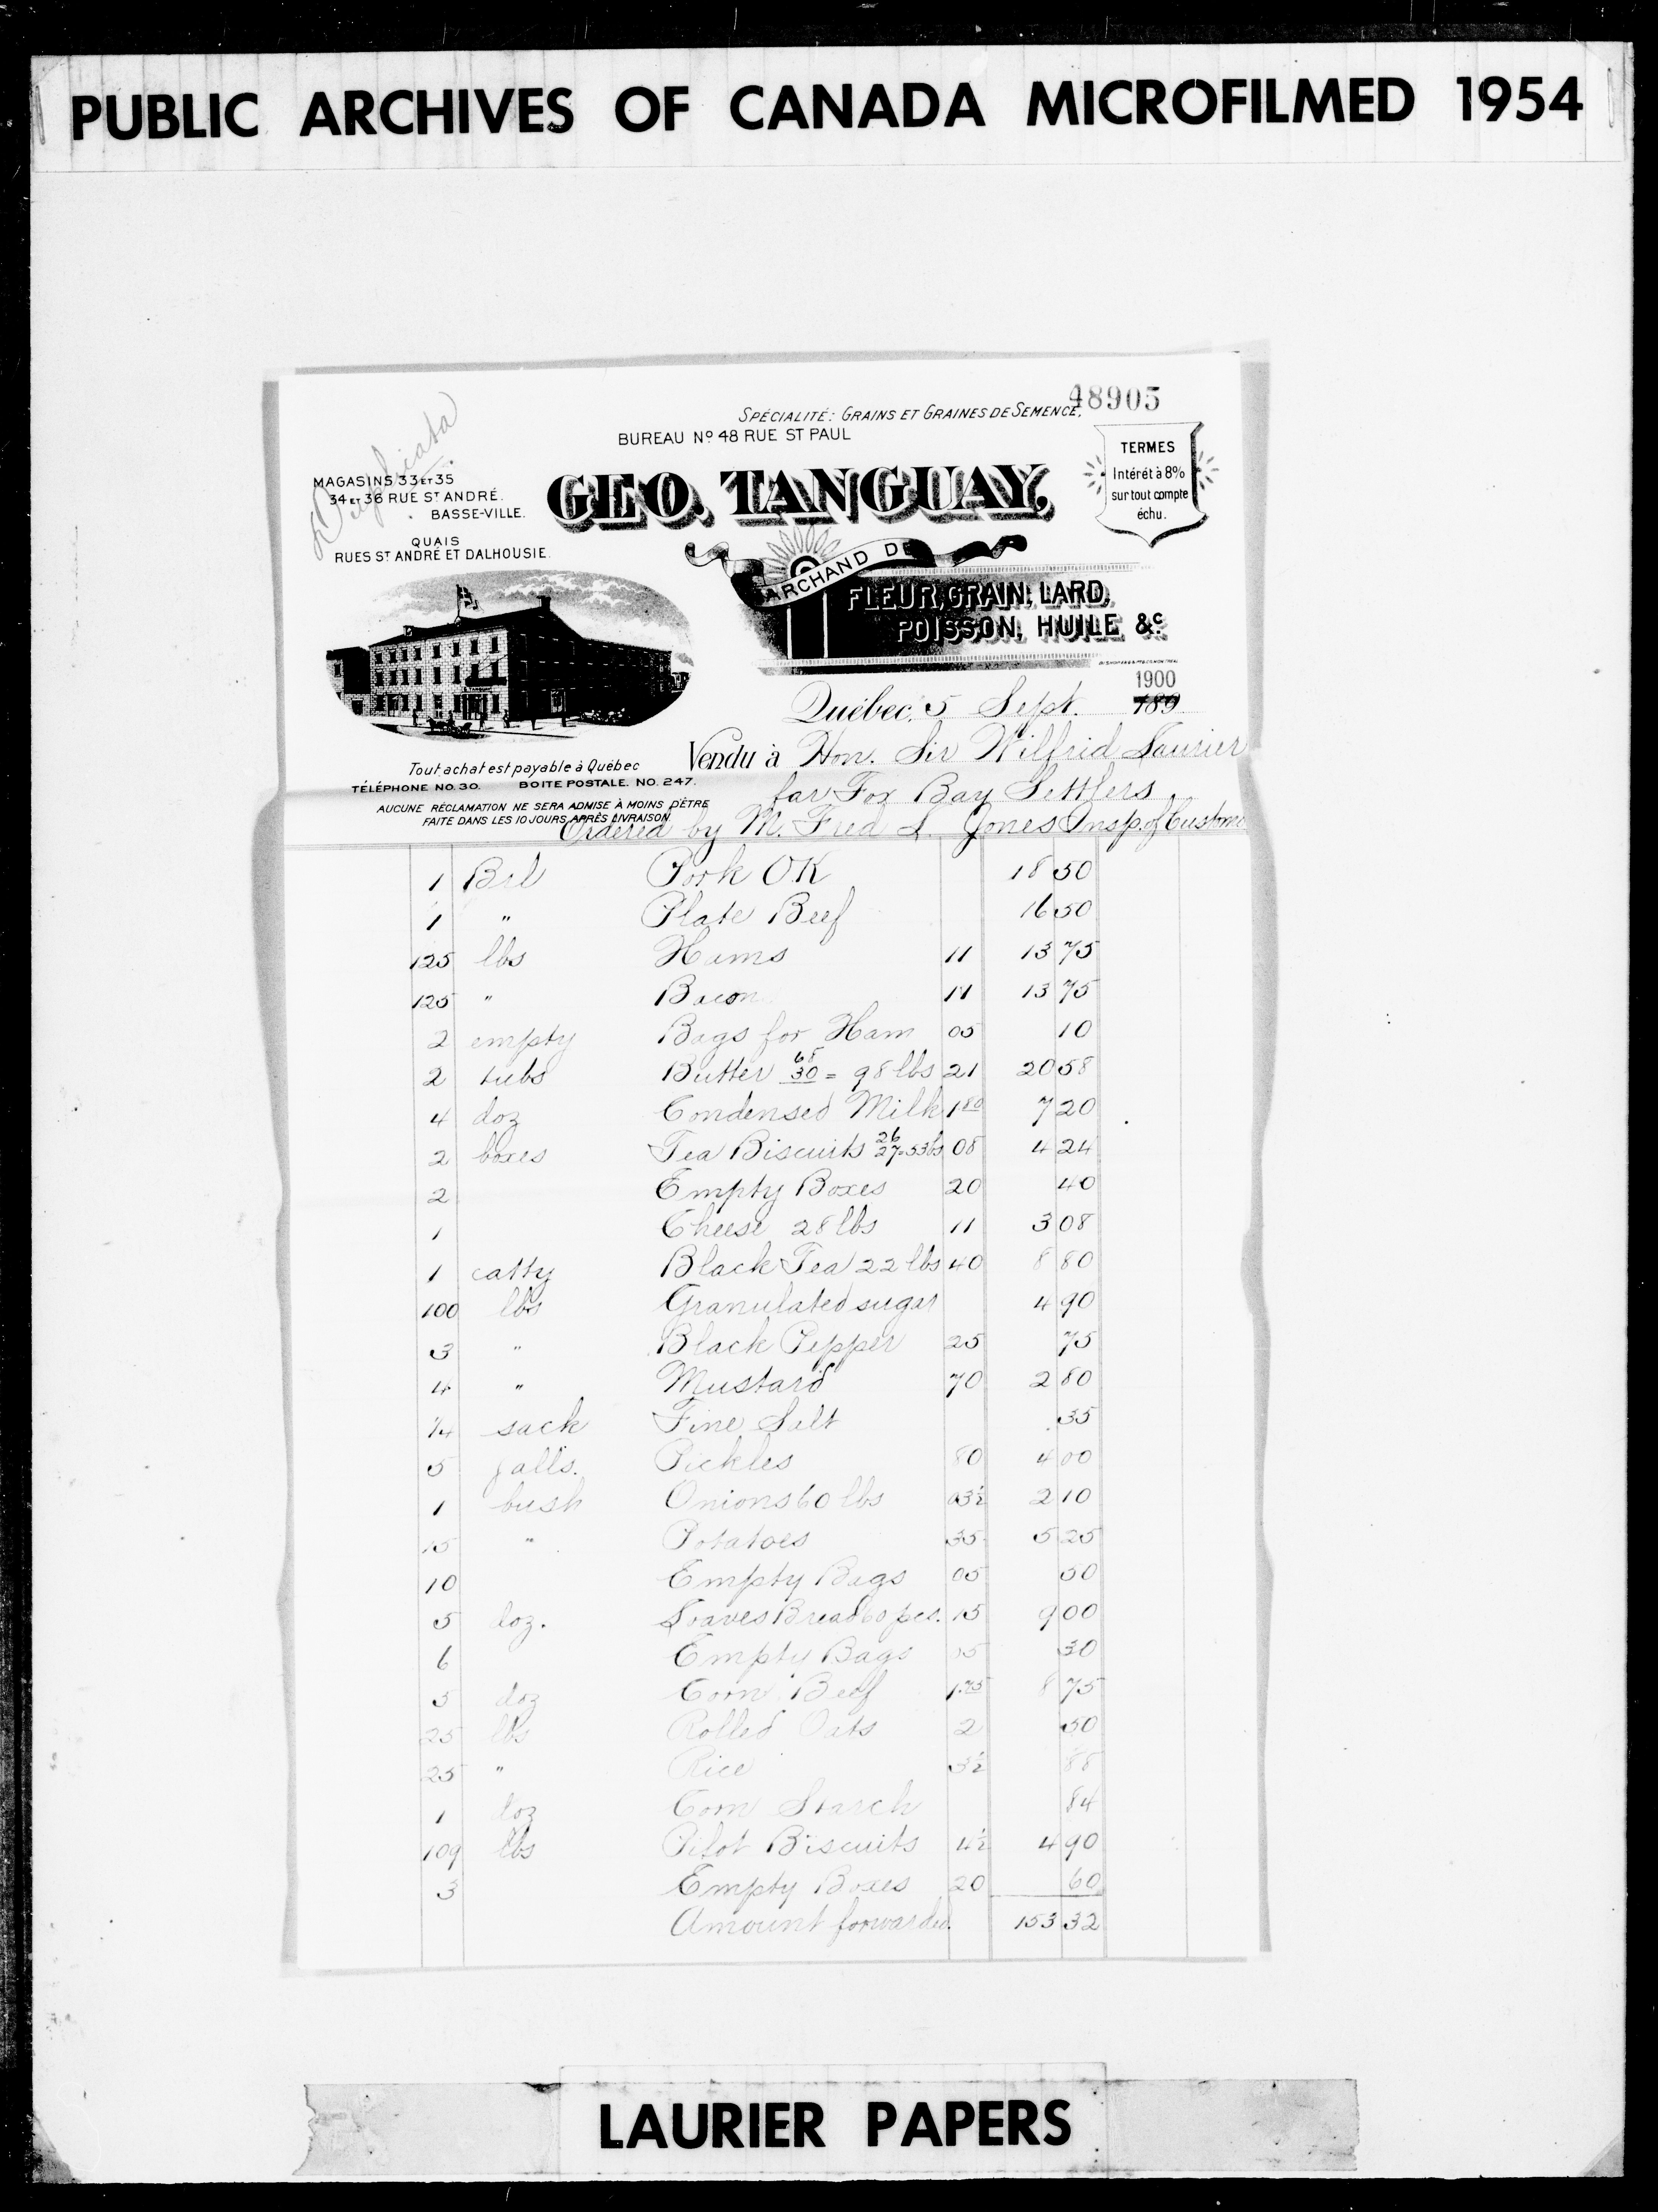 PUBLIC ARCHIVES OF CANADA MICROFILMED 1954
48905
Duplicata
SPÉCIALITÉ: GRAINS ET GRAINES DE SEMENCE.
BUREAU No 48 RUE ST PAUL
MAGASINS 33 ET 35
34 ET 36 RUE ST ANDRÉ.
BASSE-VILLE.
QUAIS
RUES ST ANDRÉ ET DALHOUSIE.
GEO. TANGUAY,
TERMES
Intérêt à 8%
sur tout compte
échu.
MARCHAND DE
FLEUR, GRAIN, LARD,
POISSON, HUILE &c.
Québec, 5 Sept. 189 1900
Vendu à Hon. Sir Wilfrid Laurier
for Fox Bay Settlers
Tout achat est payable à Québec
TÉLÉPHONE NO. 30. BOITE POSTALE. NO. 247.
AUCUNE RÉCLAMATION NE SERA ADMISE À MOINS D'ÊTRE
FAITE DANS LES 10 JOURS APRÈS LIVRAISON.
Ordered by M. Fred L. Jones Insp. of Customs
1 Brl Pork OK 18 50
1 " Plate Beef 16 50
125 lbs Hams 11 13 75
125 " Bacon 11 13 75
2 empty Bags for Ham 05 10
2 tubs Butter 68 30 = 98 lbs 21 20 58
4 doz Condensed Milk 1 80 7 20
2 boxes Tea Biscuits 26 27 = 53 lbs 08 4 24
2 Empty Boxes 20 40
1 Cheese 28 lbs 11 3 08
1 catty Black Tea 22 lbs 40 8 80
100 lbs Granulated sugar 4 90
3 " Black Pepper 25 75
4 " Mustard 70 2 80
1/4 sack Fine Salt 35
5 galls. Pickles 80 4 00
1 bush Onions 60 lbs 03½ 2 10
15 " Potatoes 35 5 25
10 Empty Bags 05 50
5 doz. Loaves Bread 60 pcs. 15 9 00
6 Empty Bags 05 30
5 doz Corn Beef 1.75 8 75
25 lbs Rolled Oats 2 50
25 " Rice 3½ 88
1 doz Corn Starch 84
109 lbs Pilot Biscuits 4½ 4 90
3 Empty Boxes 20 60
Amount forwarded 153 32
LAURIER PAPERS